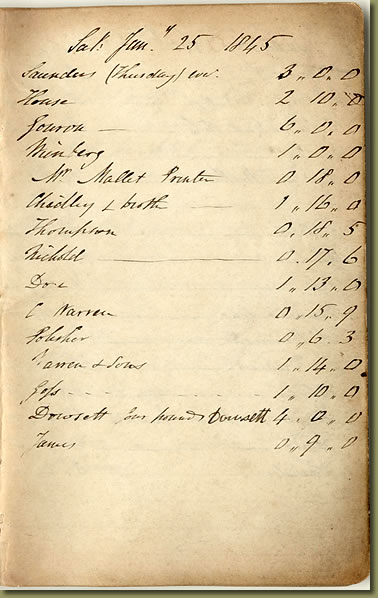 Sat. Jan.y 25 1845
Saunders (Thursday) ev. 3 " 0 " 0
House 2 10 " 0
Gouron — 6 " 0 " 0
1 " 0 " 0
Mr Mallet Printer 0 18 " 0
Chadley & broth — 1 " 16 " 0
Thompson 0 " 18 " 5
Nichold — 0 " 17 " 6
Dove 1 " 13 " 0
C Warren 0 " 15 " 9
Polisher 0 " 6 " 3
Warren & Sons 1 " 14 " 0
Goss - - - - 1 " 10 " 0
Dowsett four pounds Dowsett 4 " 0 " 0
James 0 " 9 " 0